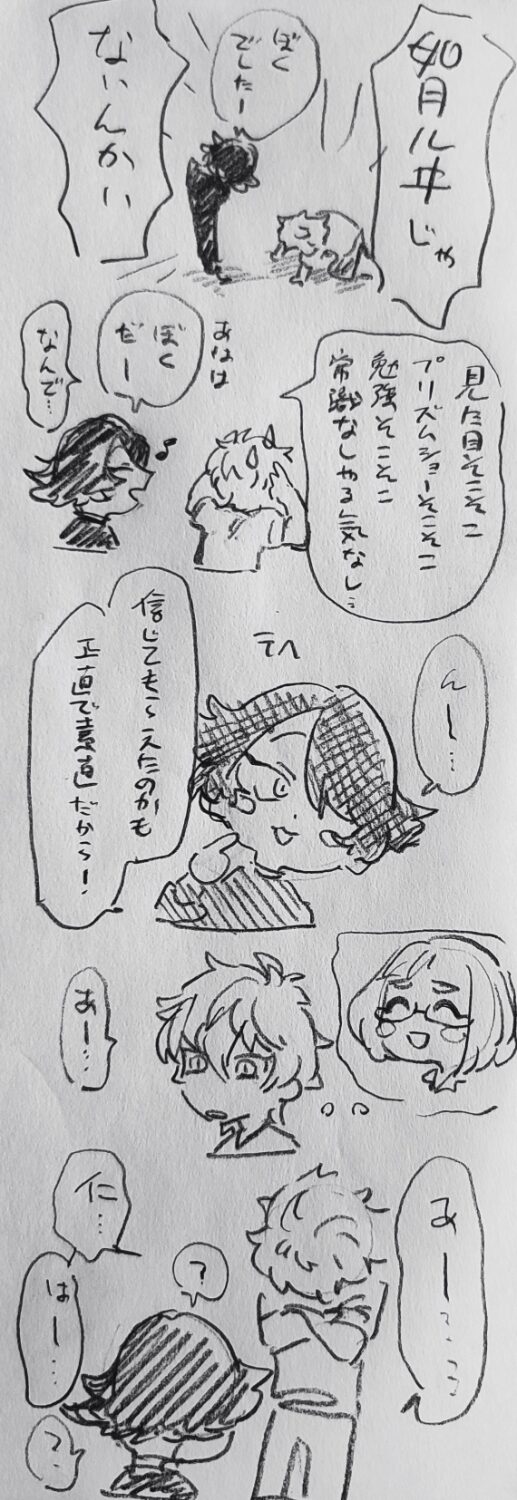 如月ルヰじゃ
ないんかい
ぼく
でしたー
見た目そこそこ
プリズムショーそこそこ
勉強そこそこ
常識なしやる気なし…
あなは
ぼく
だー
なんで…
んー…
テヘ
信じてもらえたのかも
正直で素直だからー!
あー…
あー…
?
仁…
はー…
?